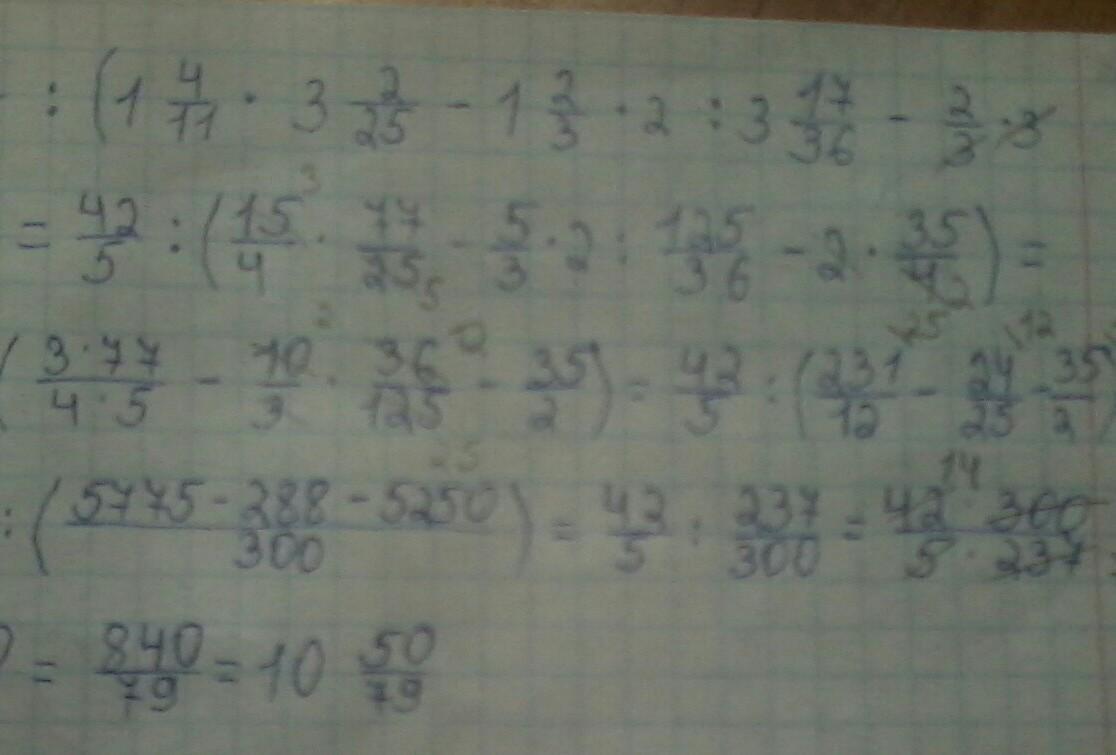 : (1 4/11 · 3 2/25 - 1 2/3 · 2 : 3 17/36 - 2/3 · 3
= 42/5 : (15/4 · 77/25 - 5/3 · 2 : 125/36 - 2 · 35/4) =
(3·77/4·5 - 10/3 · 36/125 - 35/2) = 42/5 : (231/12 - 24/25 - 35/2)
: (5775 - 288 - 5250/300) = 42/5 : 237/300 = 42 · 300/5 · 237
= 840/79 = 10 50/79